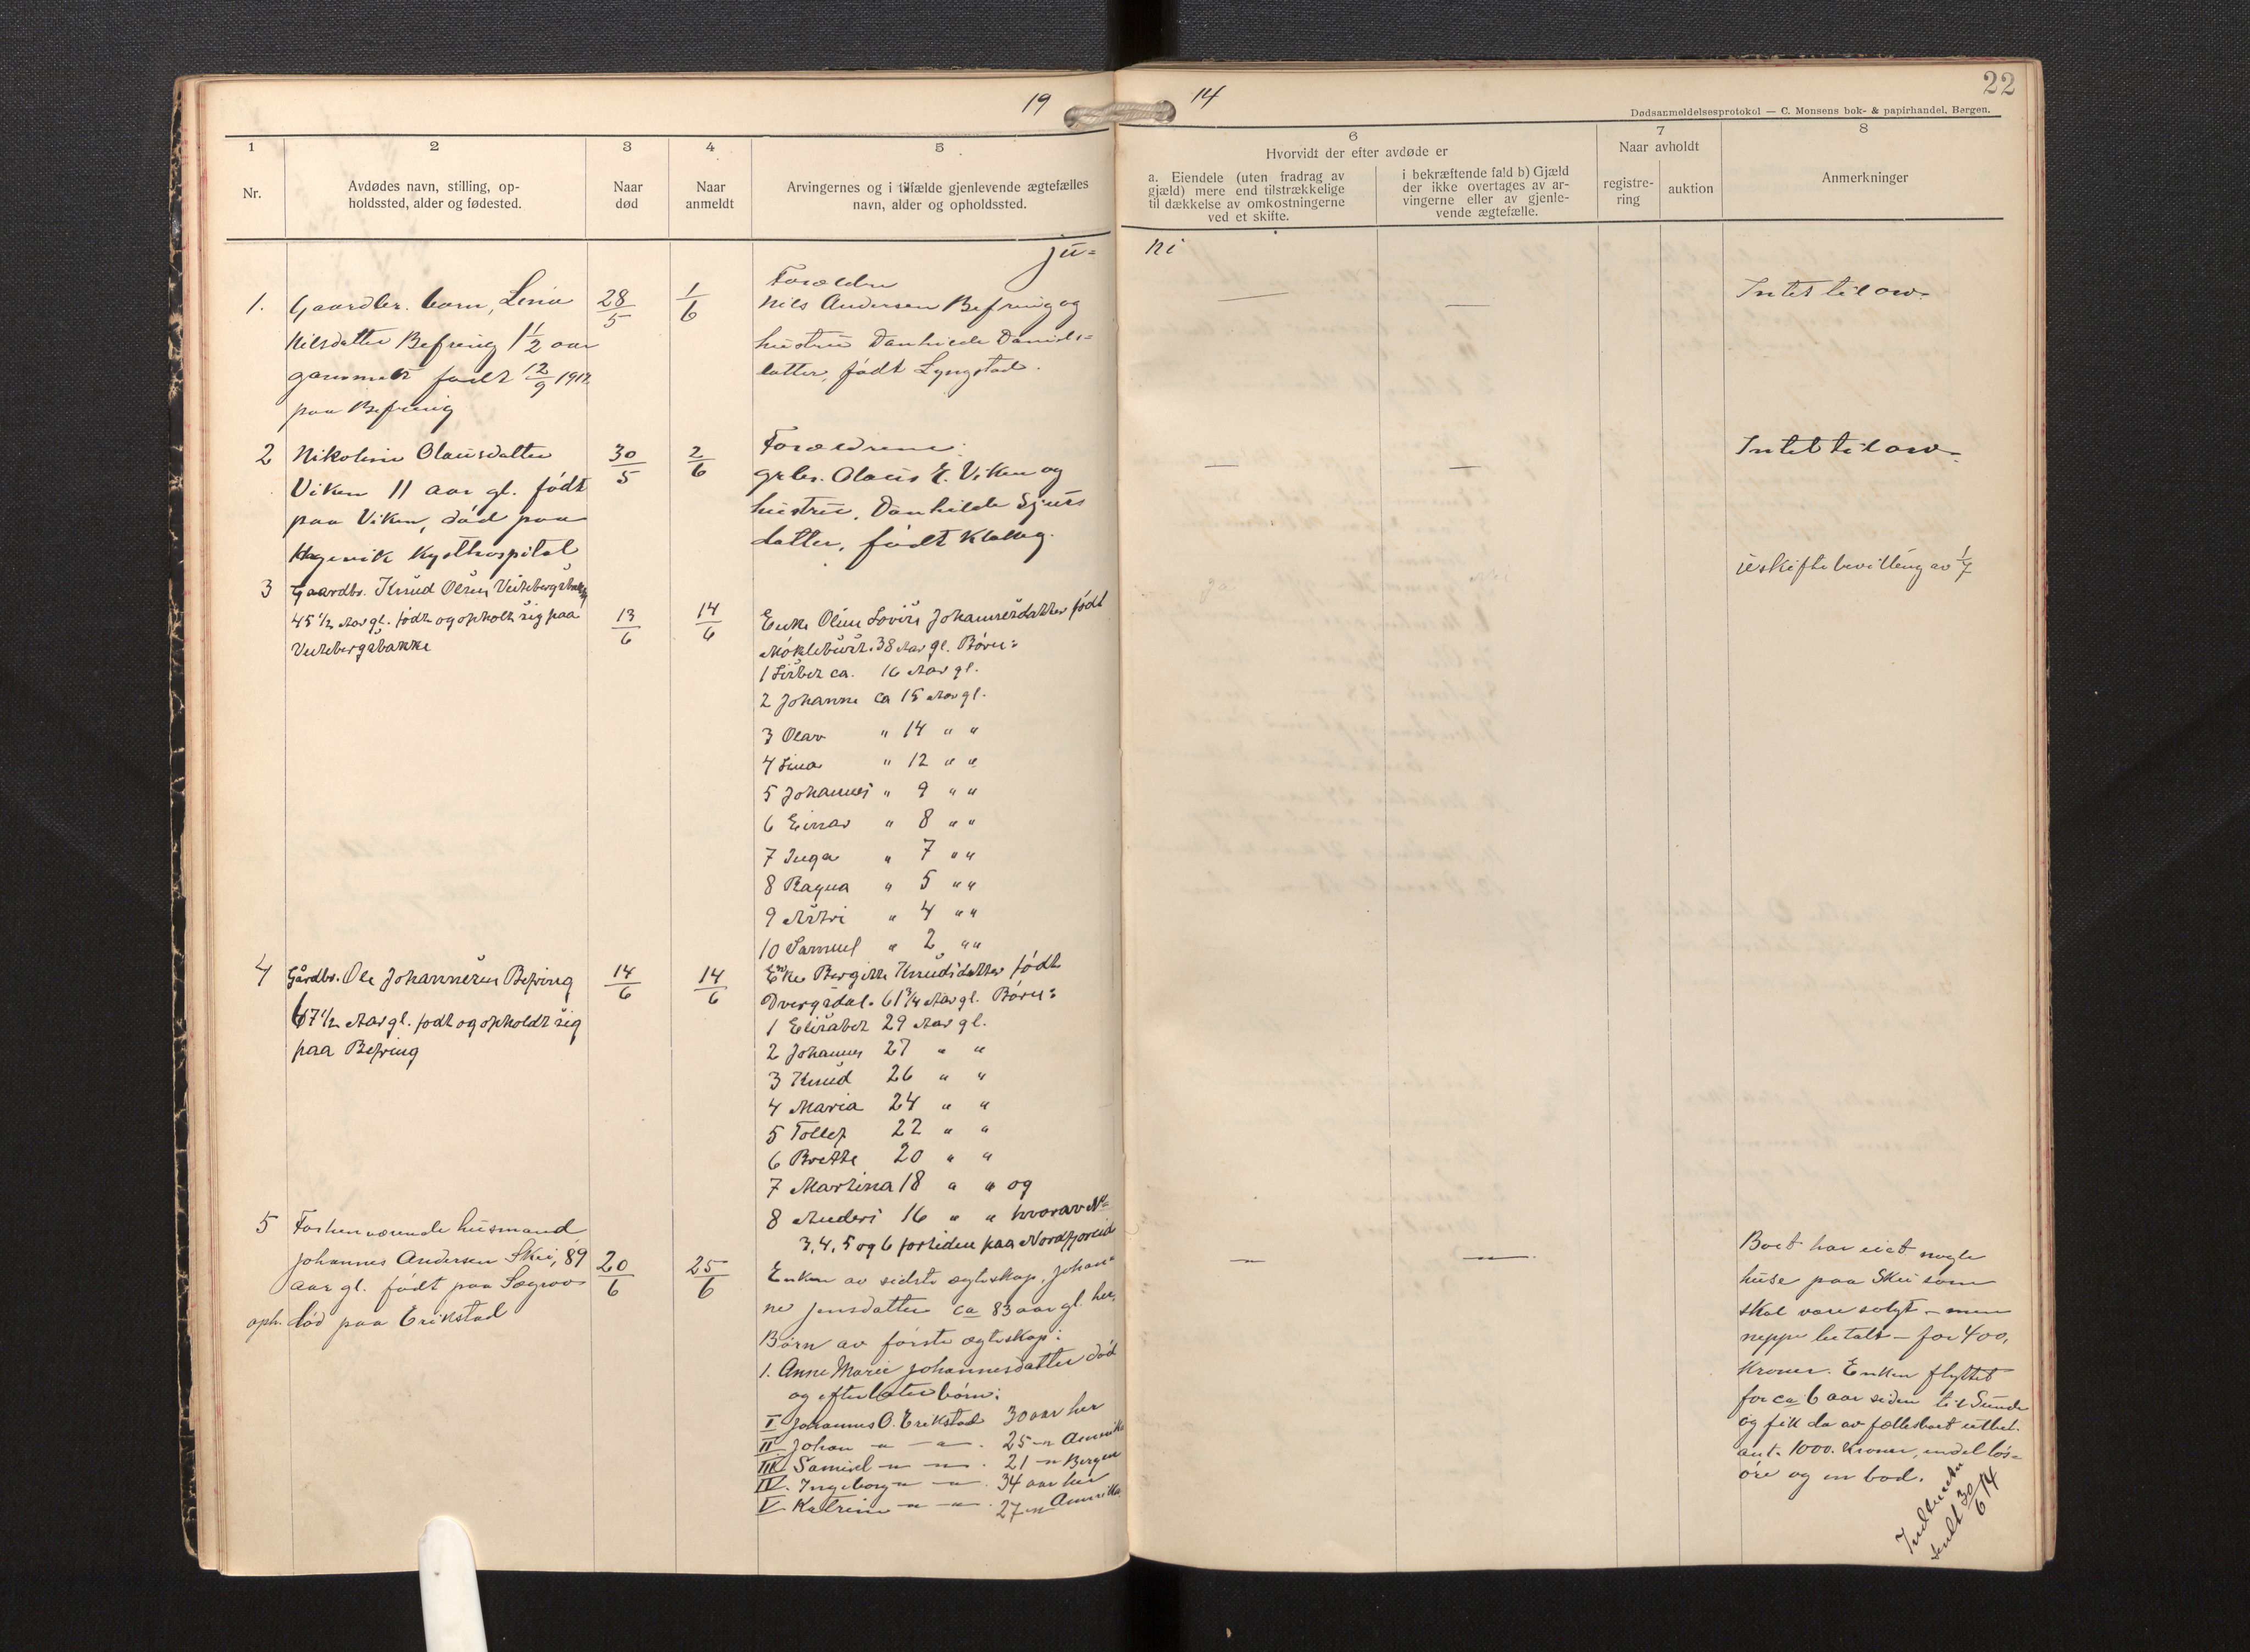 19
14
22
Dødsanmeldelsesprotokol — C. Monsens bok- & papirhandel, Bergen.
1
2
3
4
5
6
7
8
Nr.
Avdødes navn, stilling, op-
holdssted, alder og fødested.
Naar
død
Naar
anmeldt
Arvingernes og i tilfælde gjenlevende ægtefælles
navn, alder og opholdssted.
Hvorvidt der efter avdøde er
a. Eiendele (uten fradrag av
gjæld) mere end tilstrækkelige
til dækkelse av omkostningerne
ved et skifte.
i bekræftende fald b) Gjæld
der ikke overtages av ar-
vingerne eller av gjenle-
vende ægtefælle.
Naar avholdt
registre-
ring
auktion
Anmerkninger
ju=
ni
1.
Gaardbr. barn, Lina
Nilsdatter Befring 1 1/2 aar
gammelt født 12/9 1912
paa Befring
28/5
1/6
Forældre
Nils Andersen Befring og
hustru Danhilde Daniels=
datter, født Lyngstad.
—
—
Intet til arv.
2
Nikoline Olausdatter
Viken 11 aar gl. født
paa Viken, død paa
Hagevik Kysthospital
30/5
2/6
Forældrene:
grbr. Olaus E. Viken og
hustru, Danhilde Sjurs
datter, født
—
—
Intet til arv.
3
Gaardbr. Knud Olsen
45 1/2 Aar gl. født og opholt sig paa
Veitebergsbakke
13/6
14/6
Enke Oline Lovise Johannesdatter født
Møklebust. 38 Aar gl. Børn:
1 Lisbet ca. 16 Aar gl.
2 Johanne ca 15 Aar gl.
3 Olav " 14 " "
4 Lina " 12 " "
5 Johannes " 9 " "
6 Einar " 8 " "
7 Inga " 7 " "
8 Ragna " 5 " "
9 Astri " 4 " "
10 Samuel " 2 " "
uskiftebevilling av 1/7
4
Gårdbr. Ole Johannesen Befring
67 1/2 Aar gl. født og opholdt sig
paa Befring
14/6
14/6
Enke Bergitte Knudsdatter født
Dvergsdal. 61 3/4 Aar gl. Børn:
1 Elisabet 29 Aar gl.
2 Johannes 27 " "
3 Knud 26 " "
4 Maria 24 " "
5 Tollef 22 " "
6 Brette 20 " "
7 Martina 18 " " og
8 Anders 16 " " hvorav N=
3, 4, 5 og 6 fortiden paa Nordfjoreid
5
Forhenværende husmand
Johannes Andersen Skei, 89
aar gl. født paa Søgrov
oph. død paa Erikstad
20/6
25/6
Enken av sidste ægteskap, Johan=
ne Jensdatter ca 83 aar gl. her.
Børn av første ægteskap:
1. Anne Marie Johannesdatter død
og efterlater børn:
I Johannes O. Erikstad 30 aar her
II Johan — " — " — . 25 — " Amerika
III Samuel — " — " — . 21 — " Bergen
IV. Ingeborg — " — " — 34 aar her
V. Katrine — " — " — . 27 — " Amerika
—
—
Boet har eiet nogle
huse paa Skei som
skal være solgt — men
neppe betalt — for 400,
kroner. Enken flyttet
for ca 6 aar siden til Sunde
og fik da av fællesboet utbet.
ant. 1000 kroner, endel løs=
øre og en bod.
sendt 30/6 14